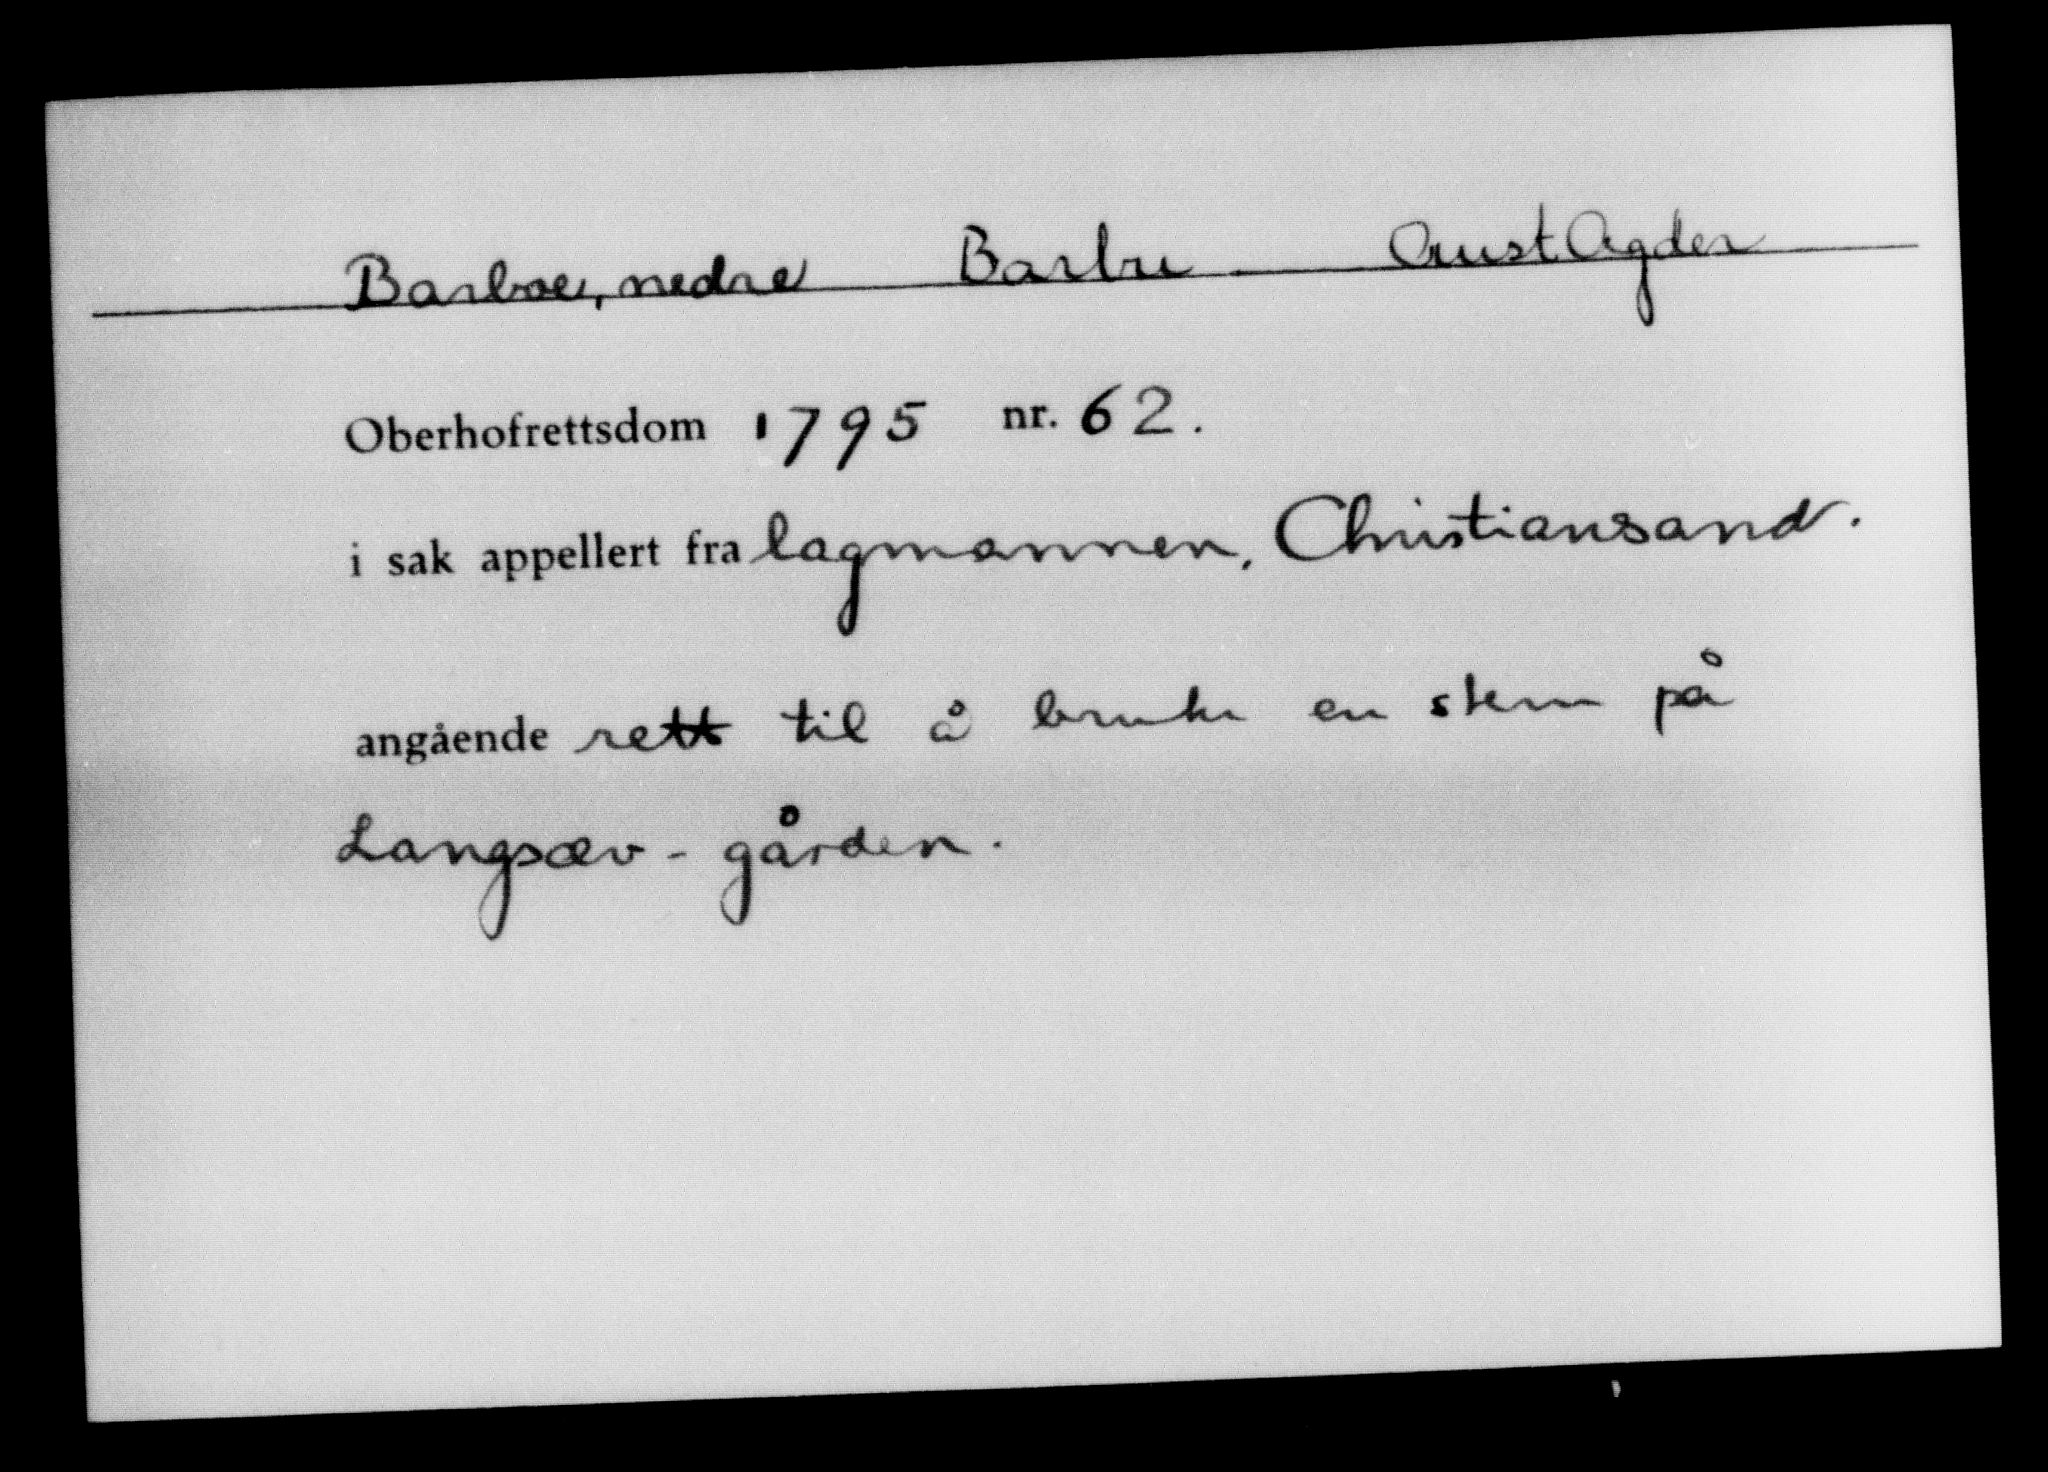 Barboe, nedre Barbu Aust Agder
Oberhofrettsdom 1795 nr. 62.
i sak appellert fra lagmannen, Christiansand.
angående rett til å bruke en stem på
Langsæv - gården.